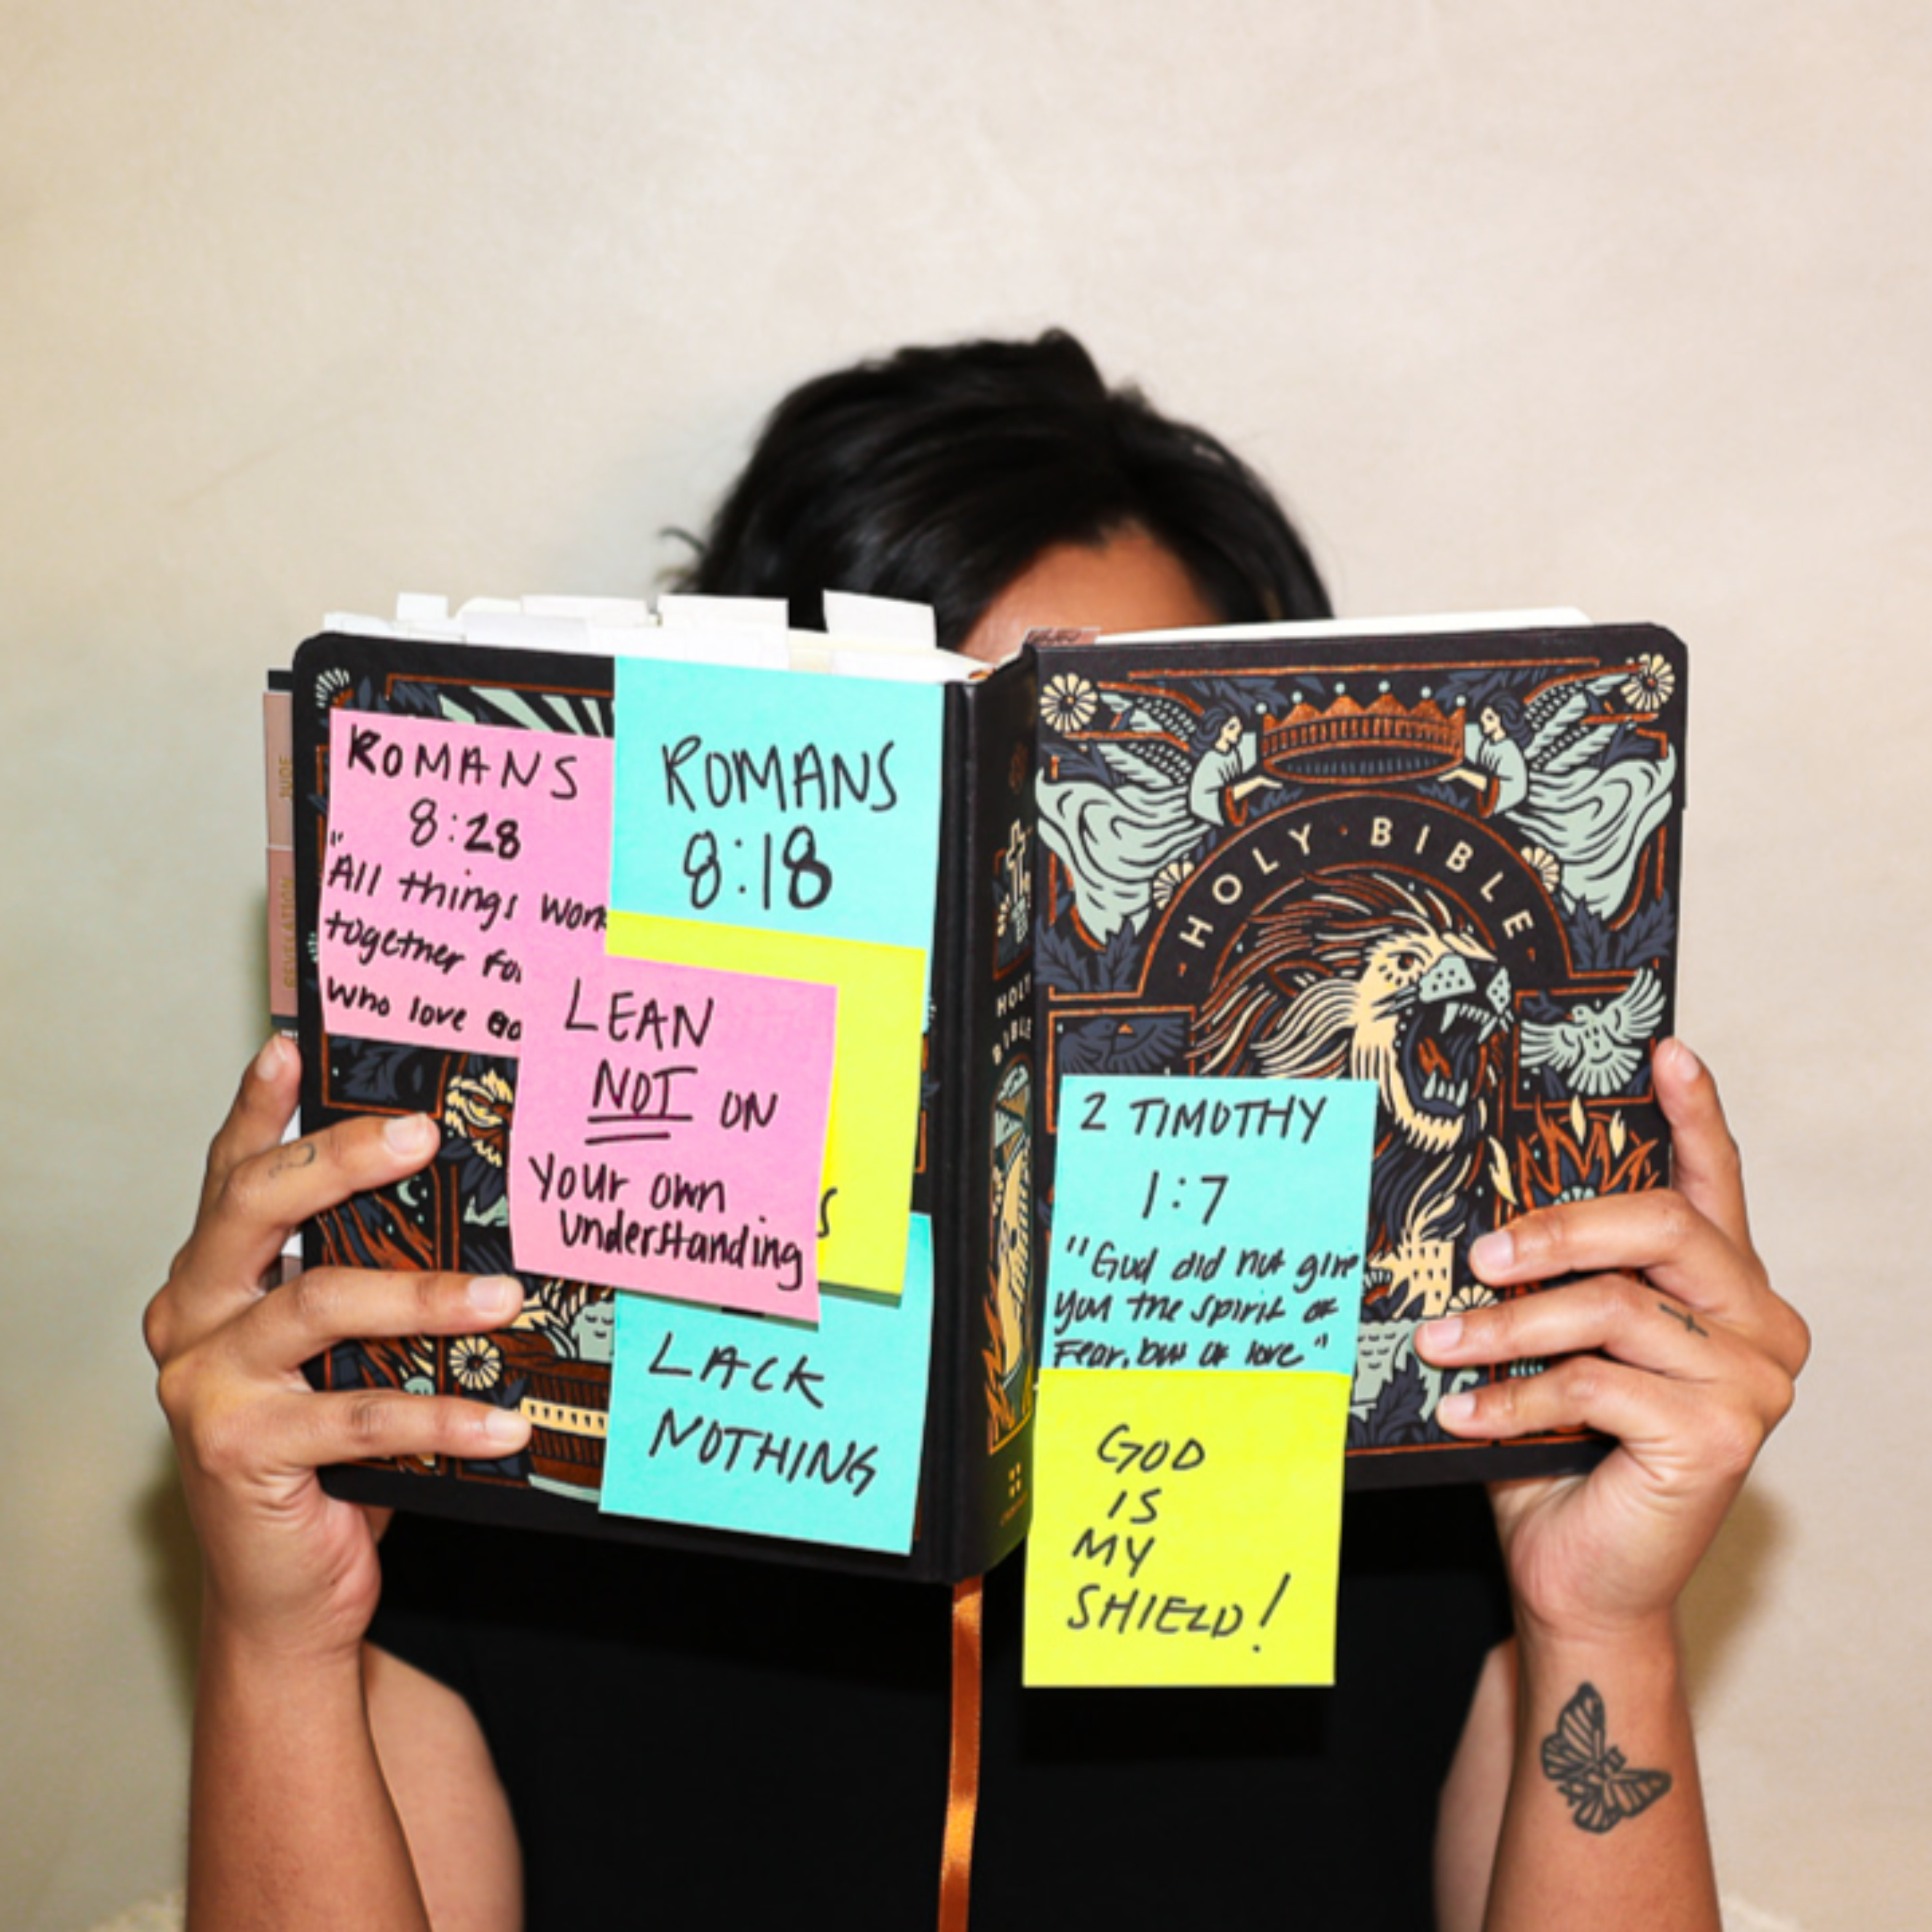 ROMANS
8:28
"All things work
together for
who love Go
ROMANS
8:18
LEAN
NOT ON
your own
understanding
S
LACK
NOTHING
JUDE
REVELATION
HOLY
BIBLE
HOLY BIBLE
2 TIMOTHY
1:7
"God did not give
you the spirit of
Fear, but of love"
GOD
IS
MY
SHIELD!